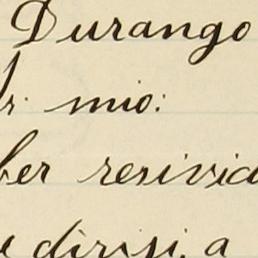 Durango
r. mio:
ber resivid
e dirisi, a